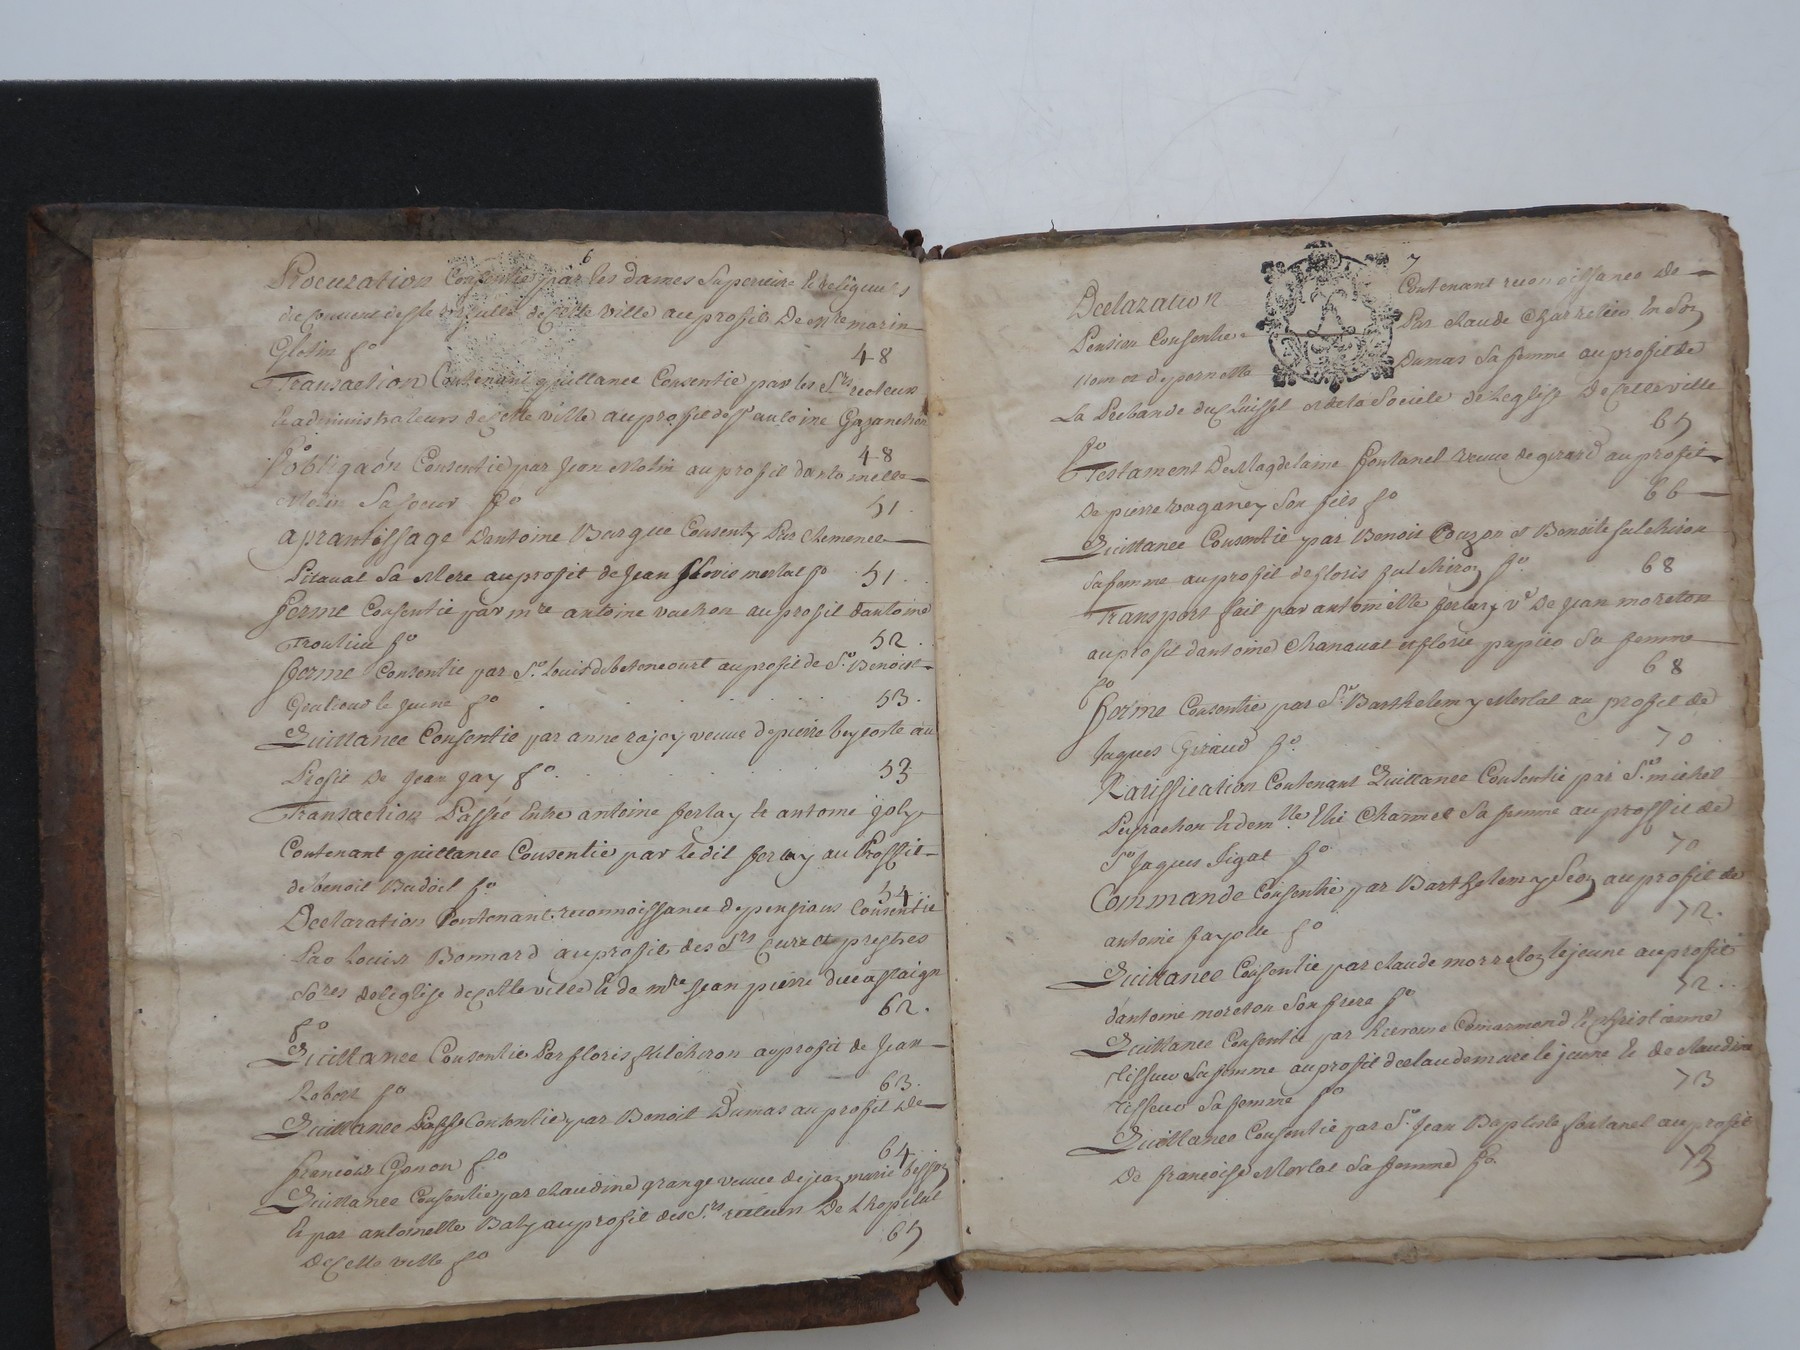 6
Procuration Consentie par les dames Superieure & religieuses
du Couvent de Ste Ursulle de Cette ville au profit De mre morin
Glotin fo 48
Transaction Contenant quittance Consentie par les Srs recteurs
& administrateurs de Cette ville au profit de Sr antoine Gazanchon
fo 48
obligaón Consentie par Jean Molin au profit dantoinette
Molin Sa soeur fo 51.
aprantissage Dantoine Barque Consenty Par Clemence
Pitaval Sa Mere au profit de Jean merlat fo 51.
ferme Consentie par mre antoine vachon au profit dantoine
Troulieu fo 52.
ferme Consentie par Sr. Louis debetencourt au profit de Sr. Benoist
le Jeune fo 53.
Quittance Consentie par anne rajoy veuve de pierre au
Profit De Jean Jay fo. 53
Transaction Passée Entre antoine ferlay & antoine joly
Contenant quittance Consentie par Ledit ferlay au Proffit
de benoit Badöil fo 54
Declaration Contenant reconnoissance de pensions Consentie
Par Louis Bonnard au profit des Srs Curé et prestres
Sores de leglise de Cette ville & de mre Jean pierre ducastaign
fo 62.
Quittance Consentie Par floris fulchiron au profit de Jean
Robert fo 63.
Quittance Passé Consentie par Benoit Dumas au profit De
francois Gonon fo 64.
Quittance Consentie par Claudine grange veuve de jean marie besson
& par antoinette Baly au profit des Srs. recteurs De Lhopital
De Cette ville fo 65
7
Declaration Contenant reconoissance de
Pension Consentie Par Claude Charretier En Son
nom & depernette Dumas Sa femme au profit de
La Prebande du Cluissel & de la Societé de Leglise De Cette ville
fo 65
Testament De Magdelaine fontanel veuve de girard au profit
De pierre raganey Son fils fo 66
Quittance Consentie par Benoit Couzon & Benoite fulchiron
Sa femme au profit de floris fulchiron fo. 68
Transport fait par antoinette ferlay ve De Jean moreton
au profit dantoine Chanavat & florie papier Sa femme
fo 68
ferme Consentie par Sr Barthelemy Merlat au profit de
Jaques Giraud fo. 70
Ratiffication Contenant Quittance Consentie par Sr. michel
Peyrachon & demlle. Elie Charmet Sa femme au proffit de
Sr Jaques Figat fo 70
Commande Consentie par Barthelemy au profit de
antoine fayolle fo 72.
Quittance Consentie par claude morreton lejeune au profit
dantoine moreton Son frere fo 72..
Quittance Consentie par hierosme Comarmond & Christienne
Tisseur Sa femme au profit de claude mure le jeune & de Claudine
Tisseur Sa femme fo 73
Quittance Consentie par Sr. Jean Baptiste fontanel au profit
De françoise Merlat Sa femme fo. 73